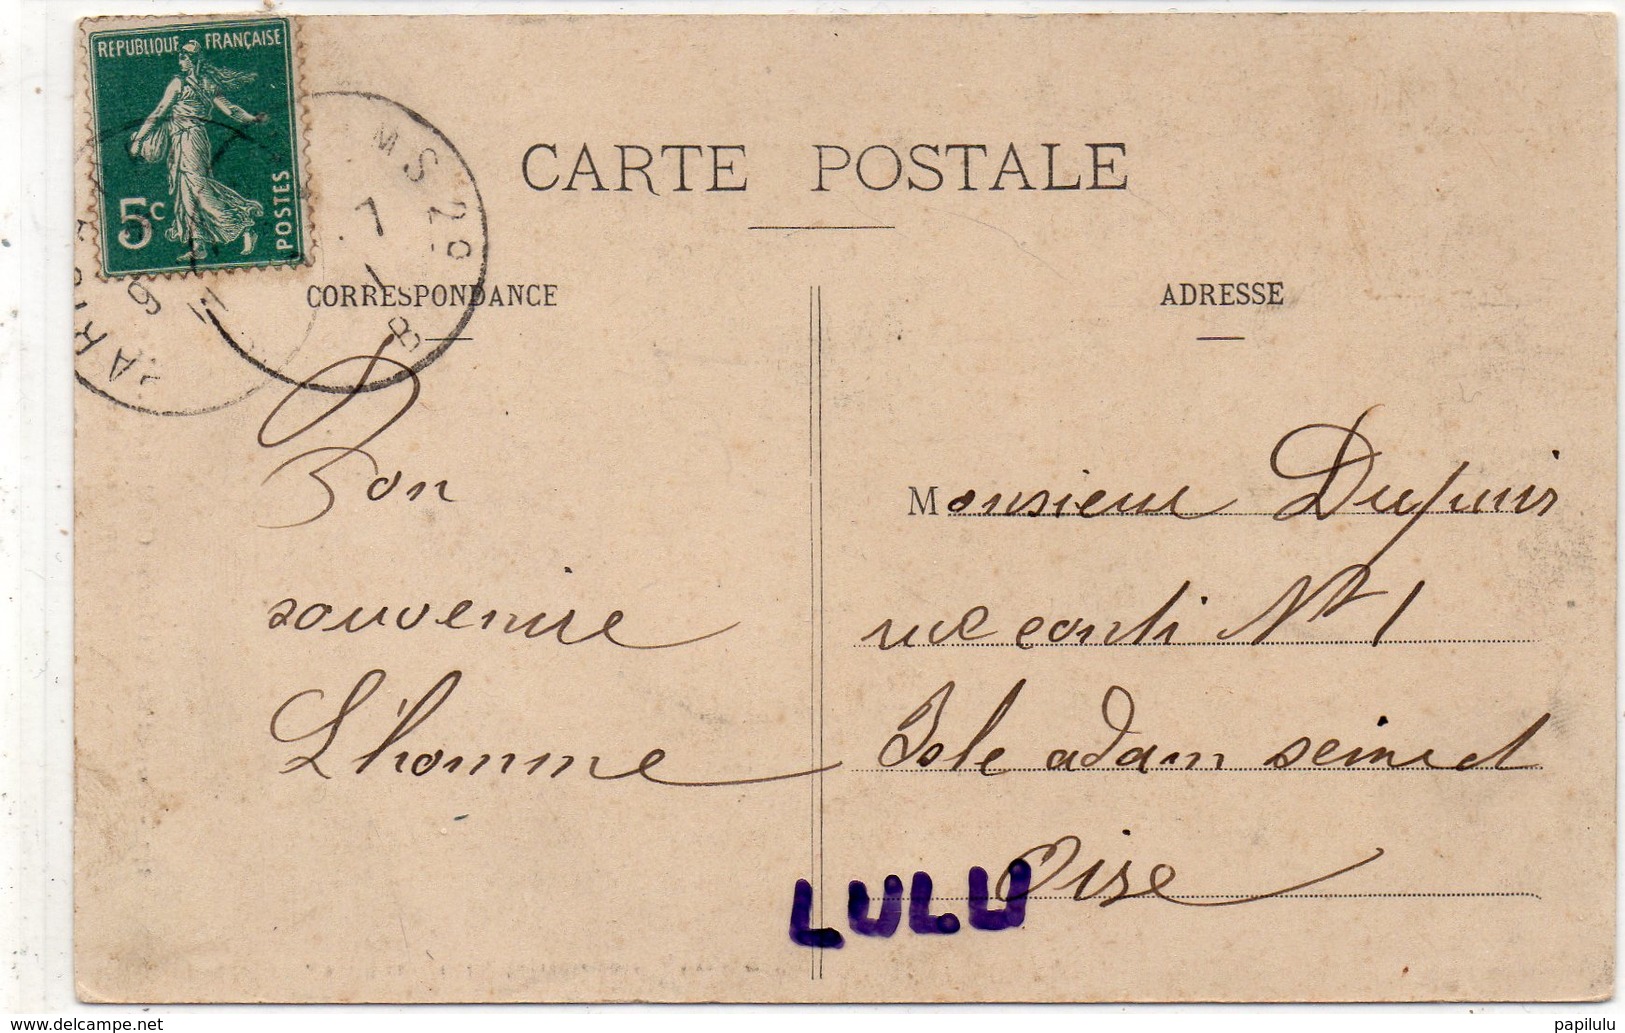 REPUBLIQUE FRANÇAISE
5c
POSTES
CARTE POSTALE
CORRESPONDANCE
ADRESSE
Bon
souvenire
L'homme
Monsieur Dupuis
rue conti N° 1
Isle adam seine et
Oise
LULU
www.delcampe.net
papilulu